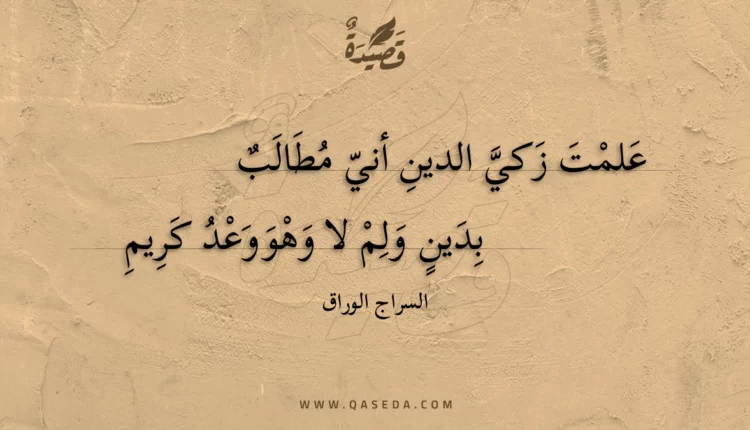 قَصِيْدَةٌ
عَلمْتَ زَكيَّ الدينِ أنيّ مُطَالَبٌ
بِدَينٍ وَلِمْ لا وَهْوَ وَعْدُ كَرِيمِ
السراج الوراق
WWW.QASEDA.COM